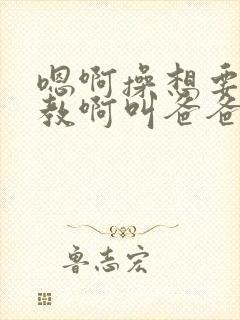 嗯啊操想要
教啊叫爸爸
鲁志宏